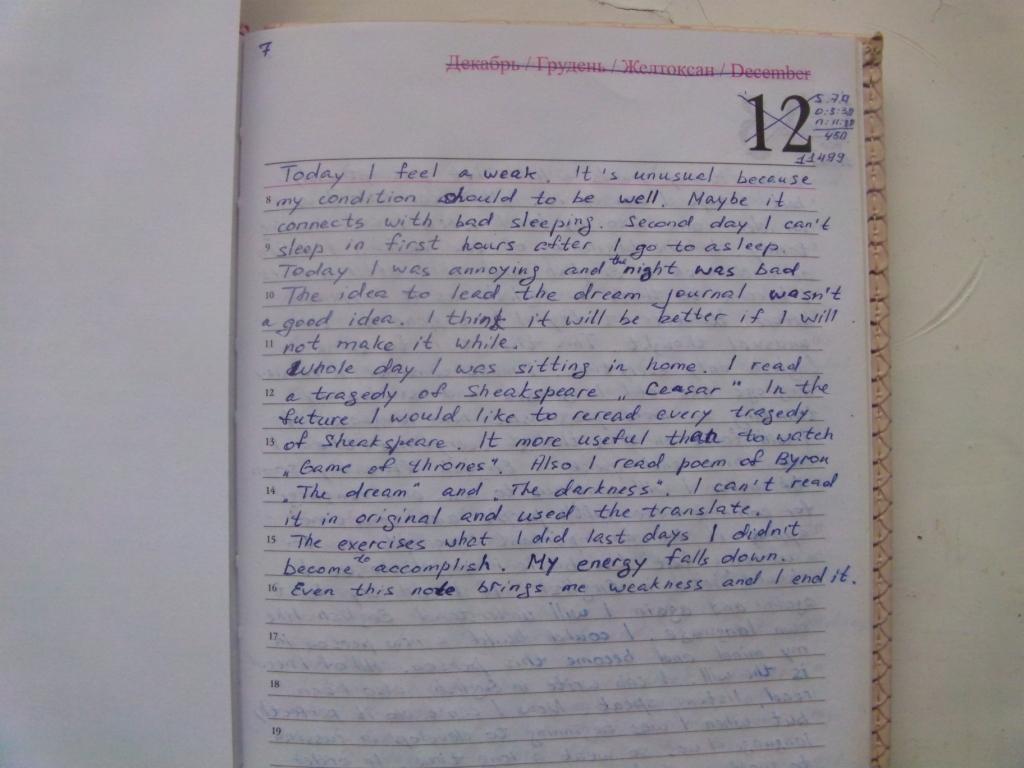 7
Декабрь / Грудень / Желтоқсан / December
12
11499
Today I feel a weak. It's unusual because
8 my condition should to be well. Maybe it
connects with bad sleeping. Second day I can't
9 sleep in first hours after I go to asleep.
Today I was annoying and the night was bad
10 The idea to lead the dream journal wasn't
a good idea. I think it will be better if I will
11 not make it while.
Whole day I was sitting in home. I read
12 a tragedy of Sheakspeare „Ceasar" In the
future I would like to reread every tragedy
13 of Sheakspeare. It more useful than to watch
„Game of thrones". Also I read poem of Byron
14 „The dream" and „The darkness". I can't read
it in original and used the translate.
15 The exercises what I did last days I didn't
become to accomplish. My energy falls down.
16 Even this note brings me weakness and I end it.
17
18
19